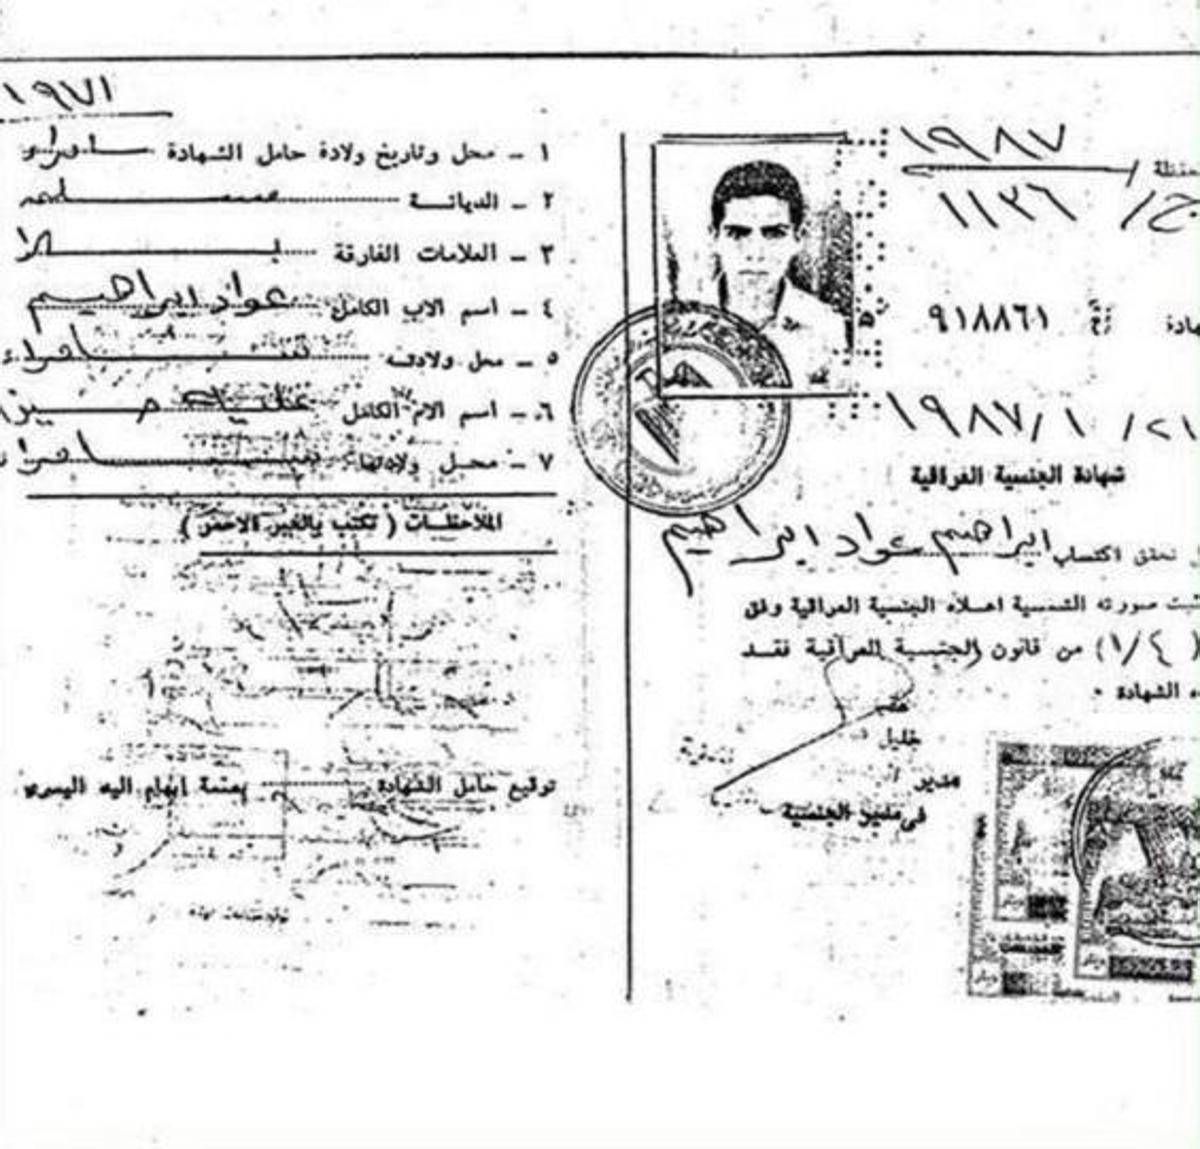 ١٩٨٧
حفظة /
ح/ ١١٣٦
هادة رقم ٩١٨٨٦١
٢١/ ١ /١٩٨٧
شهادة الجنسية العراقية
تحقق اكتساب ابراهيم عواد ابراهيم
صورته الشمسية اعلاه الجنسية العراقية وفق
(١/٤) من قانون الجنسية العراقية فقد
الشهادة .
خليل
مدير
الجنسية
١٩٧١
١ ــ محل وتاريخ ولادة حامل الشهادة سامراء
٢ ــ الديانة مسلم
٣ ــ العلامات الفارقة بلا
٤ ــ اسم الاب الكامل عواد ابراهيم
٥ ــ محل ولادته سامراء
٦ ــ اسم الام الكامل
٧ ــ محل ولادتها سامراء
الملاحظات ( تكتب بالحبر الاحمر )
توقيع حامل الشهادة بصمة ابهام اليد اليسرى